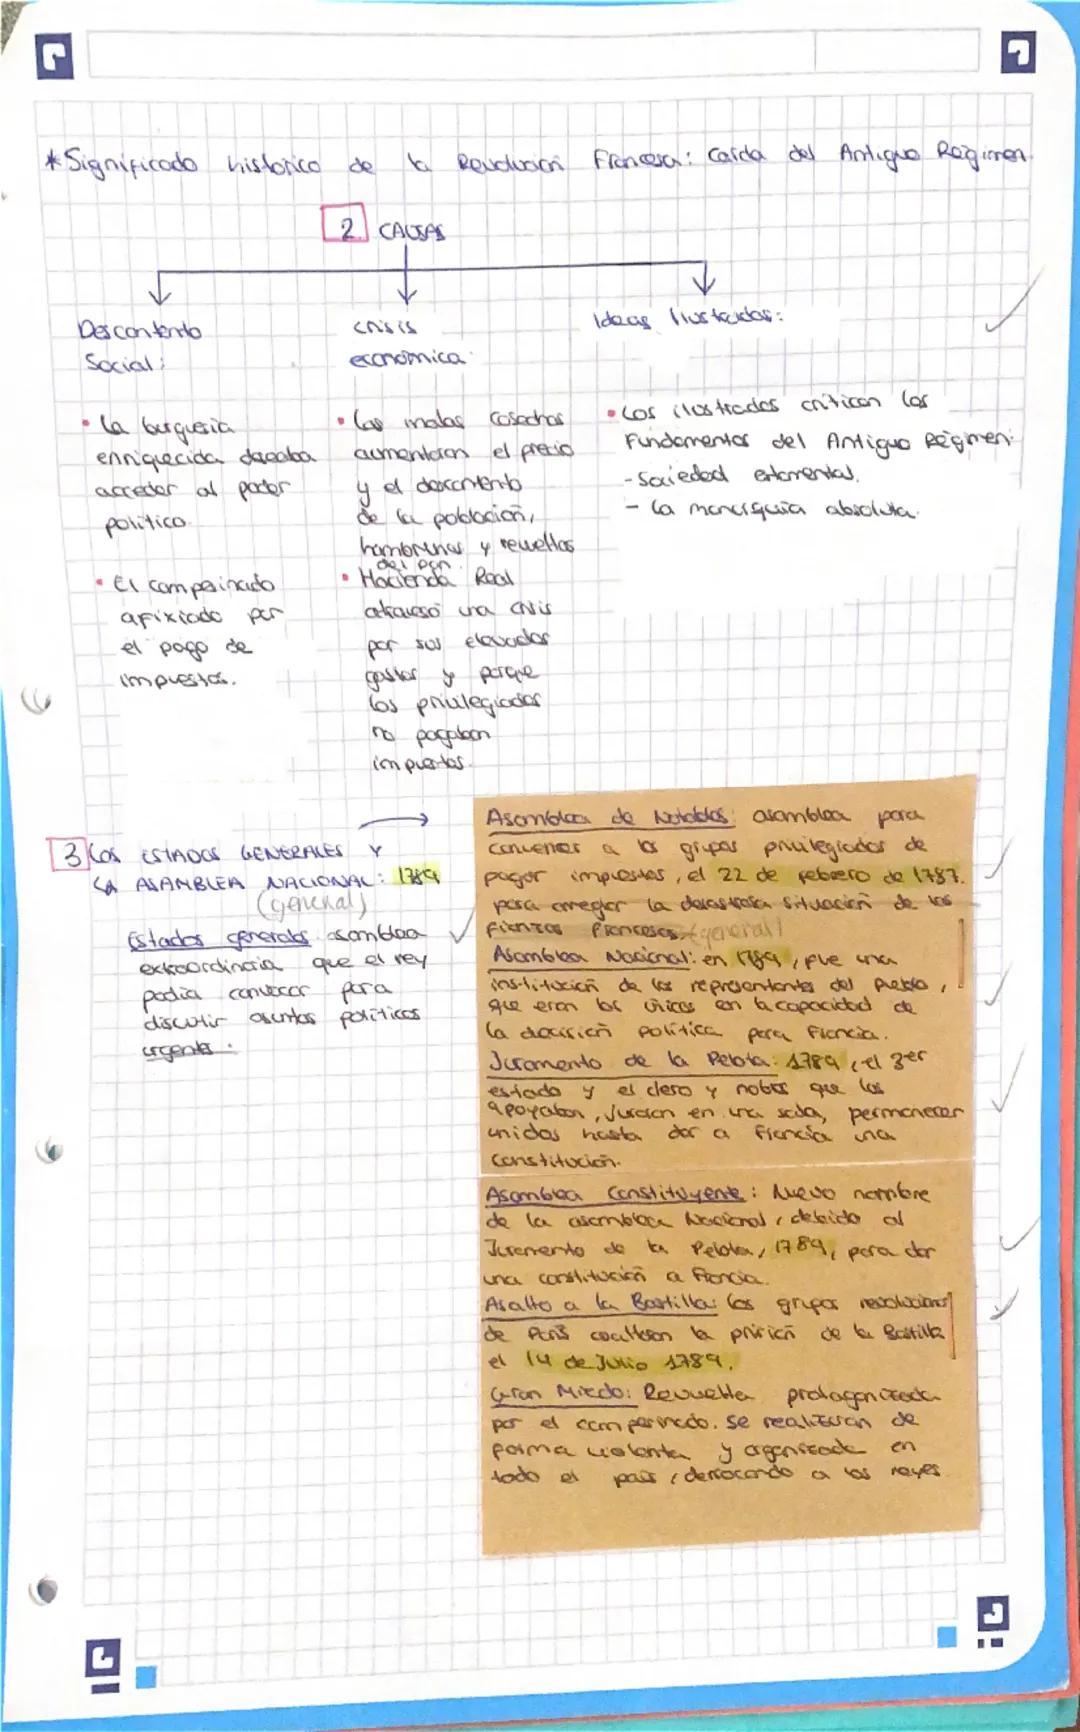 * Significado historico de la Revolución Francesa: Caída del Antiguo Régimen.
2. CAUSAS
Descontento
Social:
• La burguesia
enriquecida deseaba
acceder al poder
político.
• El campesinado
afixiado por
el pago de
impuestos.
crisis
económica:
• Las malas cosechas
aumentaron el precio
y el descontento
de la población,
hambrunas y revueltas
del pan.
• Hacienda Real
atravesó una crisis
por sus elevados
gastos y porque
los privilegiados
no pagaban
impuestos.
Ideas Ilustradas:
• Los ilustrados critican los
Fundamentos del Antiguo Régimen:
- Sociedad estamental.
- La monarquía absoluta.
3 LOS ESTADOS GENERALES Y
LA ASAMBLEA NACIONAL: 1789
(general)
Estados generales: asamblea
extraordinaria que el rey
podía convocar para
discutir asuntos políticos
urgentes.
Asamblea de Notables: asamblea para
convencer a los grupos privilegiados de
pagar impuestos, el 22 de febrero de 1787.
para arreglar la desastrosa situación de las
finanzas francesas. (general)
Asamblea Nacional: en 1789, fue una
institución de los representantes del pueblo,
que eran los únicos en la capacidad de
la decisión política para Francia.
Juramento de la Pelota: 1789, el 3er
estado y el clero y nobles que los
apoyaban, juraron en una sala, permanecer
unidos hasta dar a Francia una
constitución.
Asamblea Constituyente: Nuevo nombre
de la asamblea Nacional, debido al
Juramento de la Pelota, 1789, para dar
una constitución a Francia.
Asalto a la Bastilla: los grupos revolucionar
de París asaltaron la prisión de la Bastilla
el 14 de Julio 1789.
Gran Miedo: Revuelta protagonizada
por el campesinado. Se realizaran de
forma violenta y organizada en
todo el país, derrocando a los reyes.